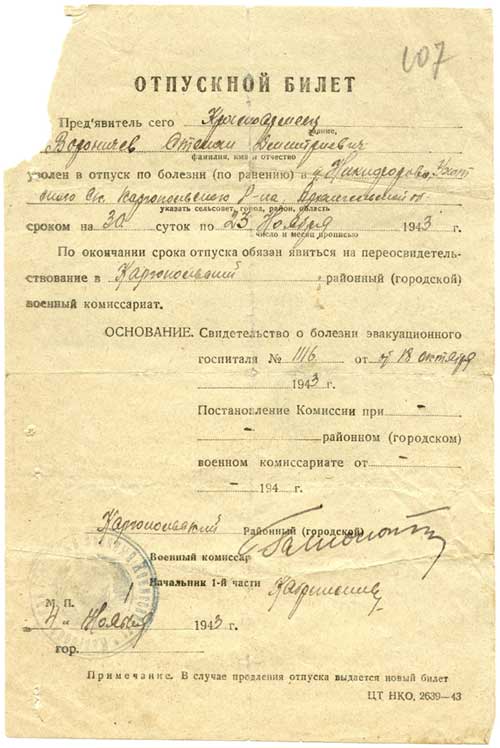 107
ОТПУСКНОЙ БИЛЕТ
Пред'явитель сего Красноармеец
звание,
Вороничев Степан Дмитриевич
фамилия, имя и отчество
уволен в отпуск по болезни (по ранению) в д. Никифорово, Ухот
ского с/с. Каргопольского р-на, Архангельской о.
указать сельсовет, город, район, область
сроком на 30 суток по 23 Ноября 1943 г.
число и месяц прописью
По окончании срока отпуска обязан явиться на переосвидетель-
ствование в Каргопольский районный (городской)
военный комиссариат.
ОСНОВАНИЕ. Свидетельство о болезни эвакуационного
госпиталя № 1116 от от 18 октября
1943 г.
Постановление Комиссии при –
– районном (городском)
военном комиссариате от –
– 194 г.
Каргопольский Районный (городской)
Военный комиссар
Начальник 1-й части
М. П.
4 " Ноября 1943 г.
гор.
Примечание. В случае продления отпуска выдается новый билет
ЦТ НКО, 2639—43